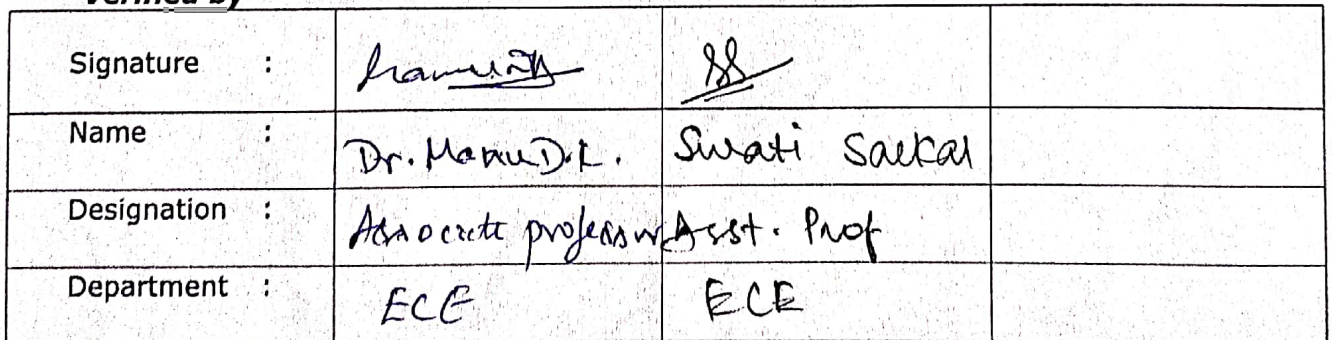 Verified by
Signature :
Name : Dr. Manu D.K. Swati Sarkar
Designation : Associate professor Asst. Prof
Department : ECE ECE